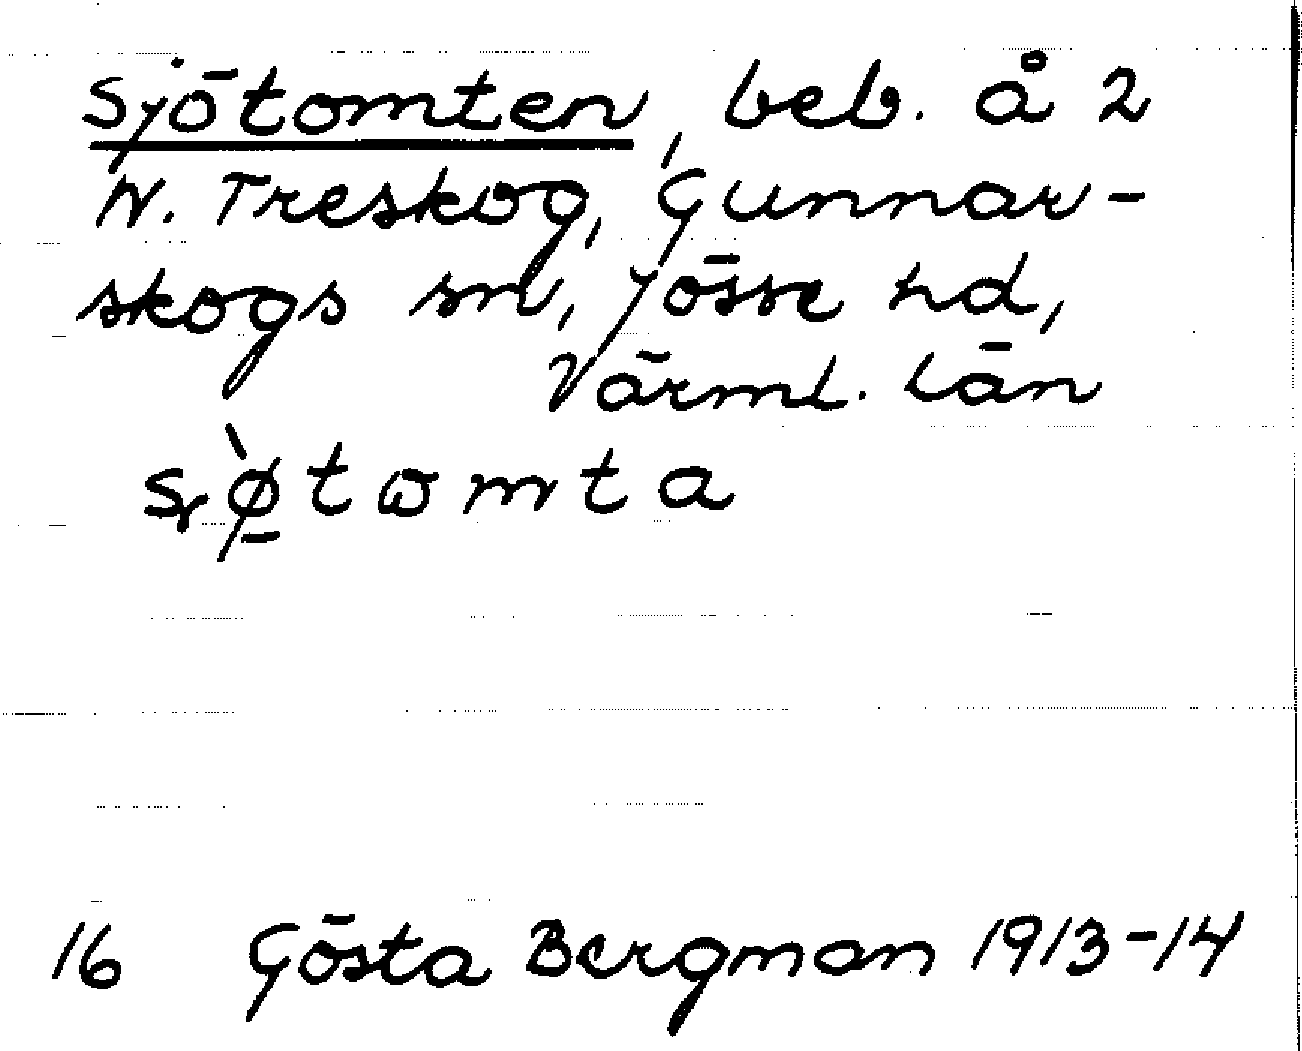 Sjötomten, beb. å 2
N. Treskog, Gunnar-
skogs sn, Jösse hd,
Värml. län
16 Gösta Bergman 1913-14